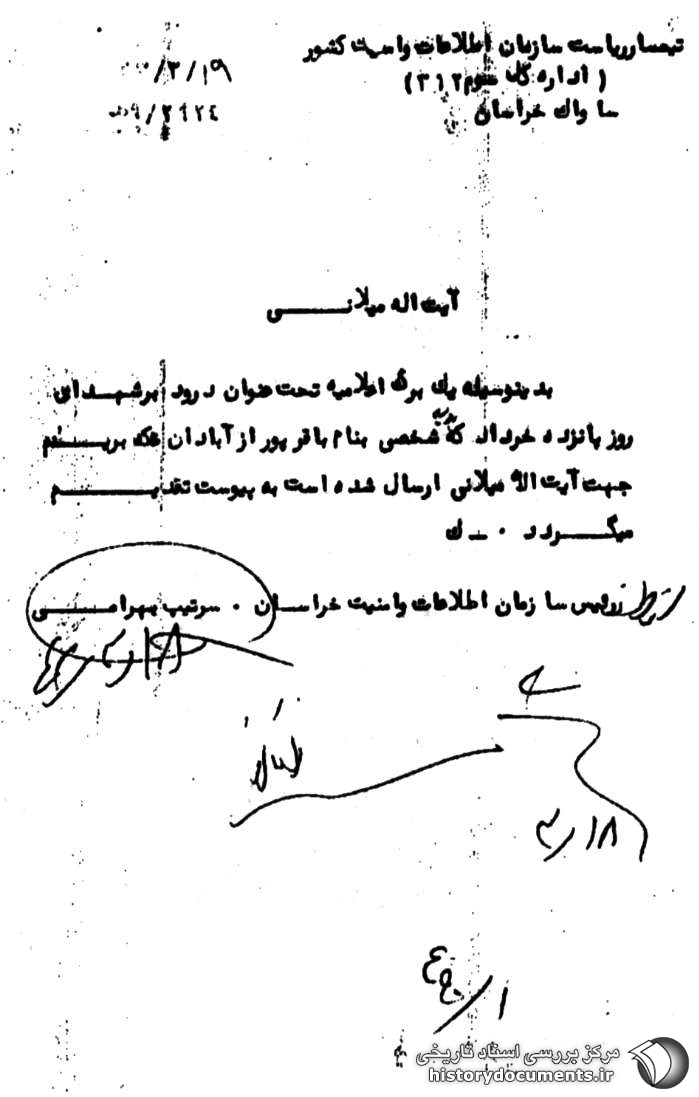 تیمسار ریاست سازمان اطلاعات و امنیت کشور
( اداره کل سوم ۳۱۲ )
ساواک خراسان
/۳/۱۹
/۲۹۲۴
آیت اله میلانــــــی
بدینوسیله یک برگ اعلامیه تحت عنوان درود برشهـدای
روز پانزده خرداد که شخصی بنام باقر پور از آبادان
جهت آیت اله میلانی ارسال شده است به پیوست تقدیـــــم
میگــــردد ۰ ــ ک
رئیس سازمان اطلاعات و امنیت خراسـان ۰ سرتیپ بهرامـــی
۱۸/۳
۱۸/۳
مرکز بررسی اسناد تاریخی
historydocuments.ir